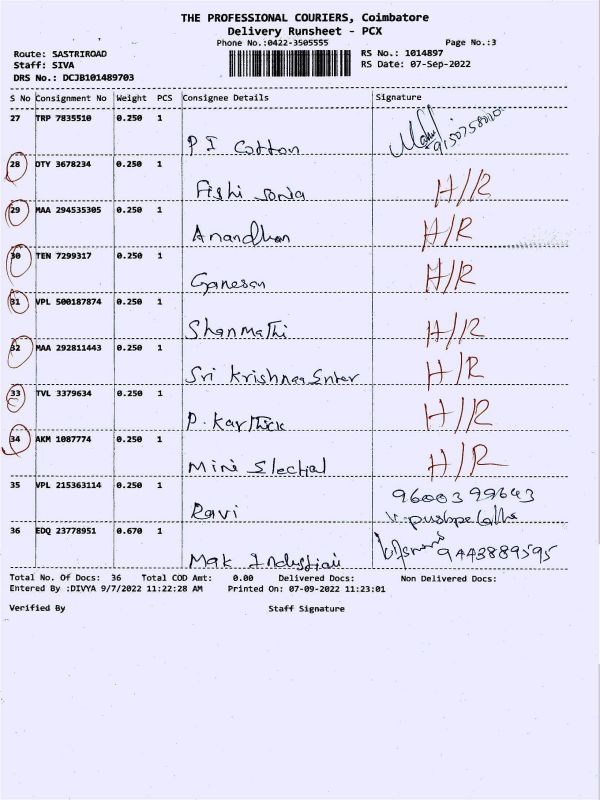 THE PROFESSIONAL COURIERS, Coimbatore
Delivery Runsheet - PCX
Phone No.:0422-3505555 Page No.:3
Route: SASTRIROAD RS No.: 1014897
Staff: SIVA RS Date: 07-Sep-2022
DRS No.: DCJB101489703
S No Consignment No Weight PCS Consignee Details Signature
27 TRP 7835510 0.250 1
P I Cotton
28 DTY 3678234 0.250 1
Sonia H/R
29 MAA 294535305 0.250 1
Anandhan H/R
30 TEN 7299317 0.250 1
Ganesan H/R
31 VPL 500187874 0.250 1
Shanmathi H/R
32 MAA 292811443 0.250 1
Sri Krishnaa H/R
33 TVL 3379634 0.250 1
P. Karthick H/R
34 AKM 1087774 0.250 1
Mini H/R
35 VPL 215363114 0.250 1 9600399643
Ravi
36 EDQ 23778951 0.670 1 9443889595
Mak
Total No. Of Docs: 36 Total COD Amt: 0.00 Delivered Docs: Non Delivered Docs:
Entered By :DIVYA 9/7/2022 11:22:28 AM Printed On: 07-09-2022 11:23:01
Verified By Staff Signature